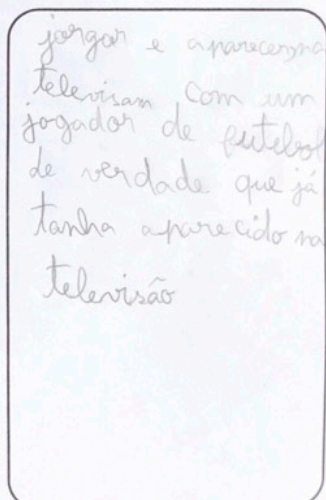 jorgar e aparecerna
televisam com um
jogador de futebol
de verdade que já
tanha aparecido na
televisão